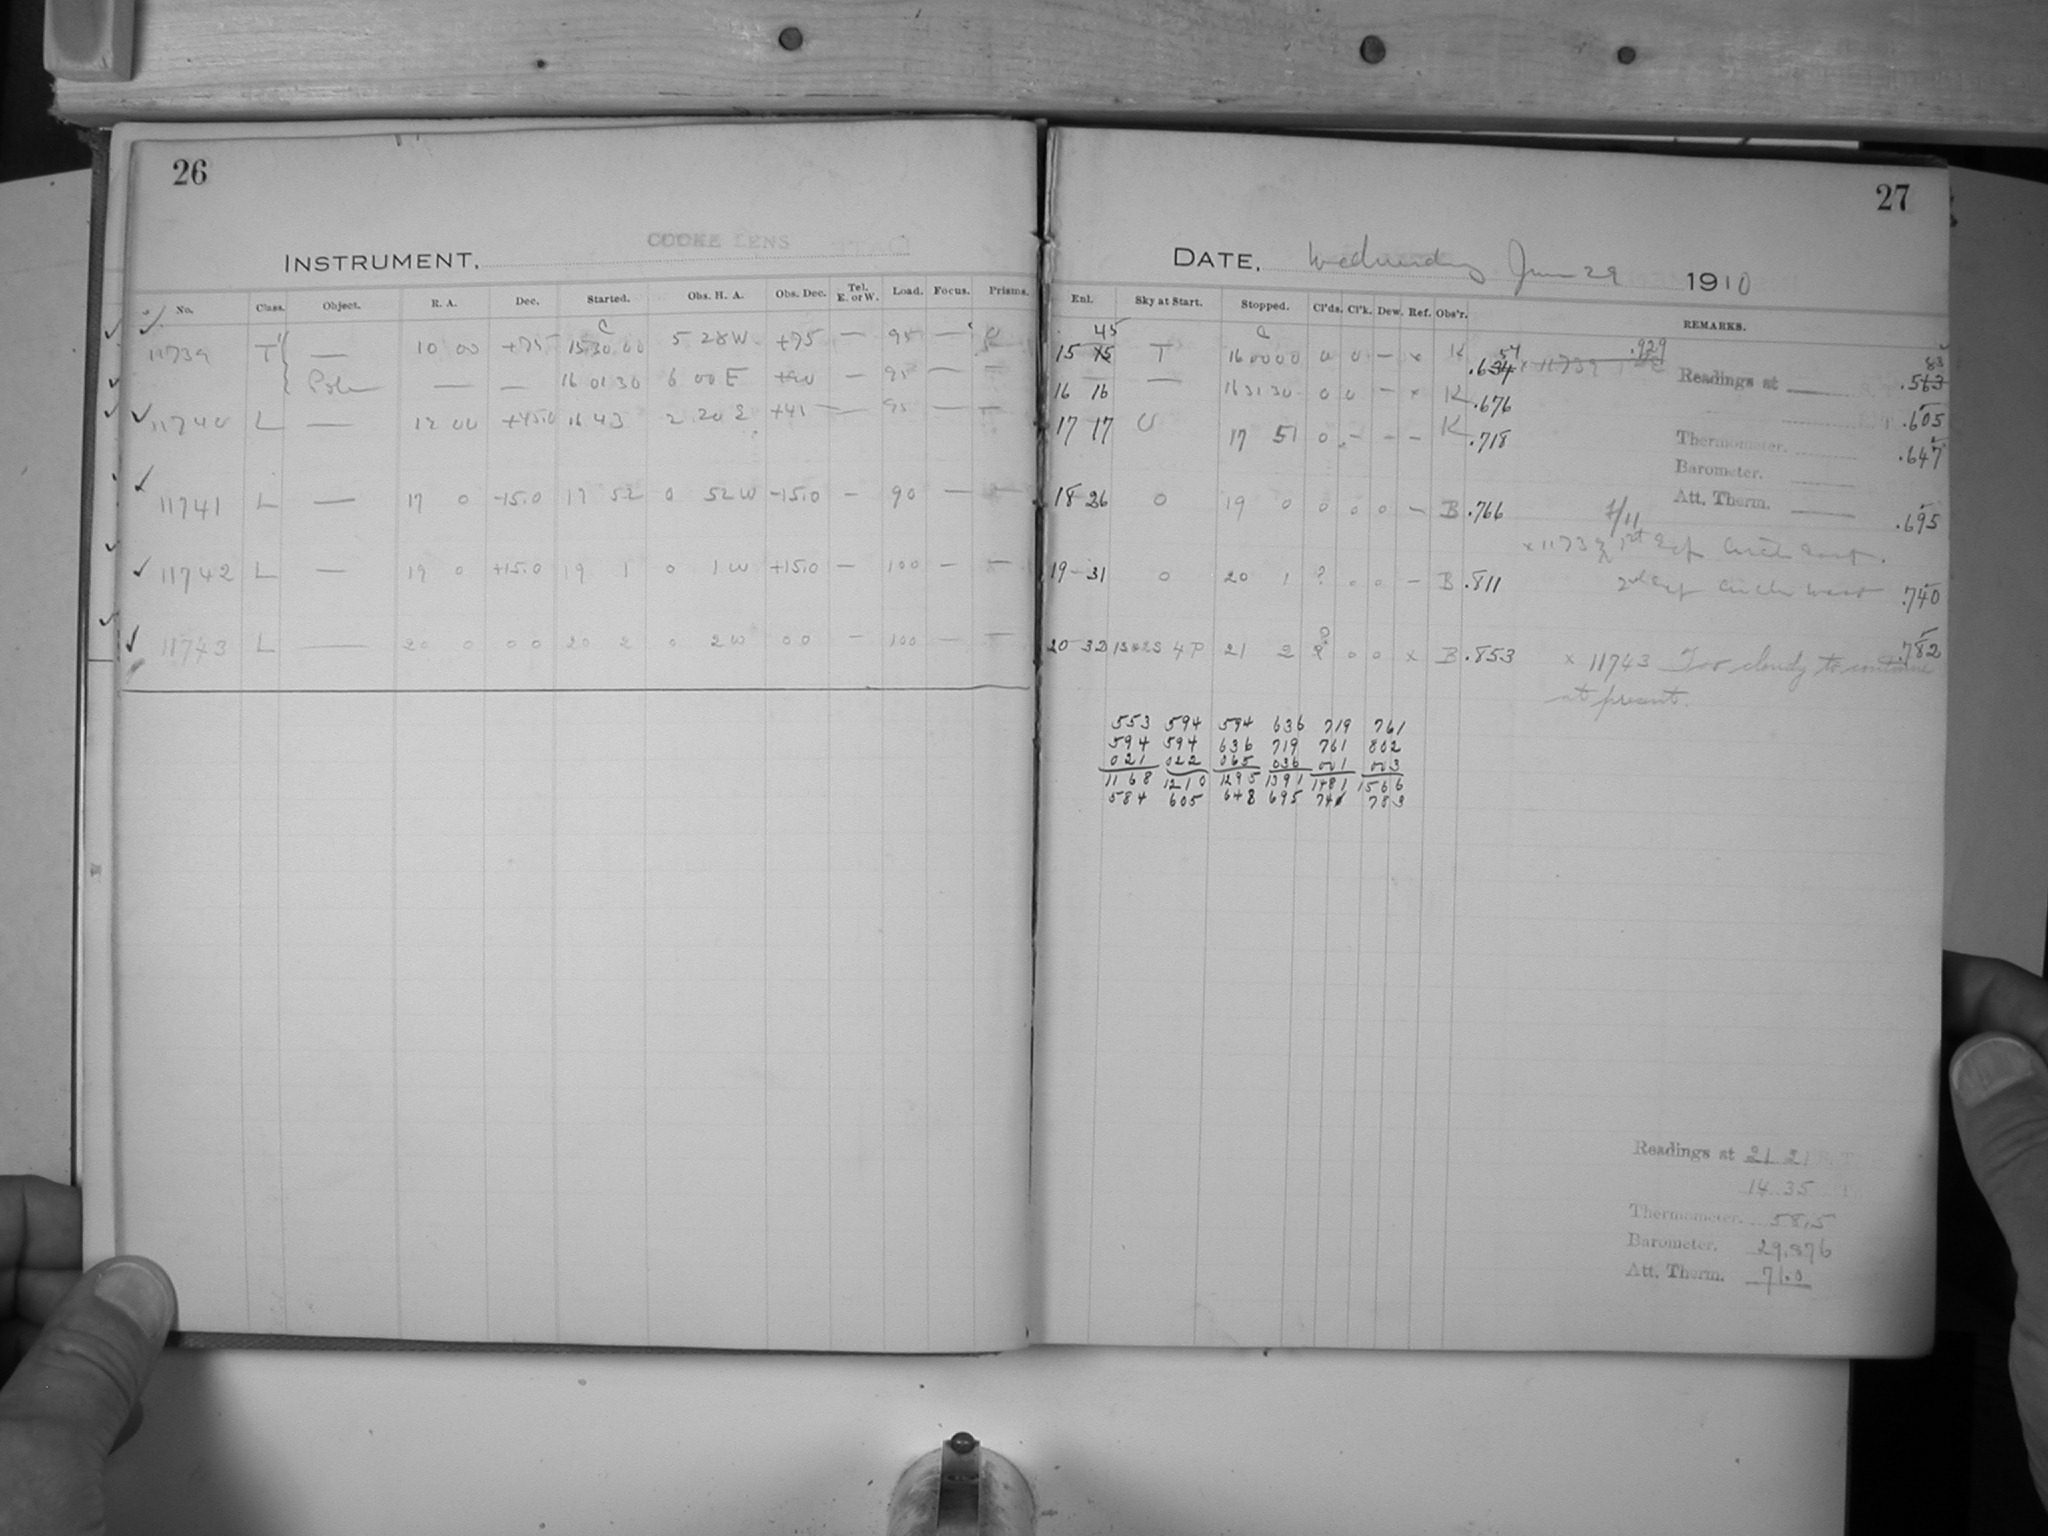 26
COOKE LENS
INSTRUMENT.
No. Class. Object. R. A. Dec. Started. Obs. H. A. Obs. Dec. Tel. E. or W. Load. Focus. Prisms.
11739 T — 10 00 +75 15 30 00 5 28 W +75 — 95 —
Pole — — 16 01 30 6 00 E +90 — 95 — —
11740 L — 12 00 +45.0 16 43 2 20 E +45 — 95 — —
11741 L — 17 0 -15.0 17 52 0 52 W -15.0 — 90 — —
11742 L — 19 0 +15.0 19 1 0 1 W +15.0 — 100 — —
11743 L — 20 0 0 0 20 2 0 2 W 0 0 — 100 — —
27
DATE, Wednesday June 29 1910
Enl. Sky at Start. Stopped. Cl'ds. Cl'k. Dew. Ref. Obs'r. REMARKS.
45
15 15 T 16 00 00 0 0 — x K .634 x 11739 .929 Readings at .563
16 16 — 16 31 30 0 0 — x K .676 .605
17 17 U 17 51 0 — — — K .718 Thermometer. .647
Barometer.
18 26 0 19 0 0 0 0 — B .766 Att. Therm. .695
x 11739 1st Exp Circle East.
19-31 0 20 1 ? 0 0 — B .811 2nd Exp Circle West .740
20-32 4P 21 2 ? 0 0 x B .853 x 11743 Too cloudy to continue .782
at present.
553 594 594 636 719 761
594 594 636 719 761 802
021 022 065 036 001 003
1168 1210 1295 1391 1481 1566
584 605 648 695 741 783
Readings at 21 21
14 35
Thermometer. 58.5
Barometer. 29.876
Att. Therm. 71.0